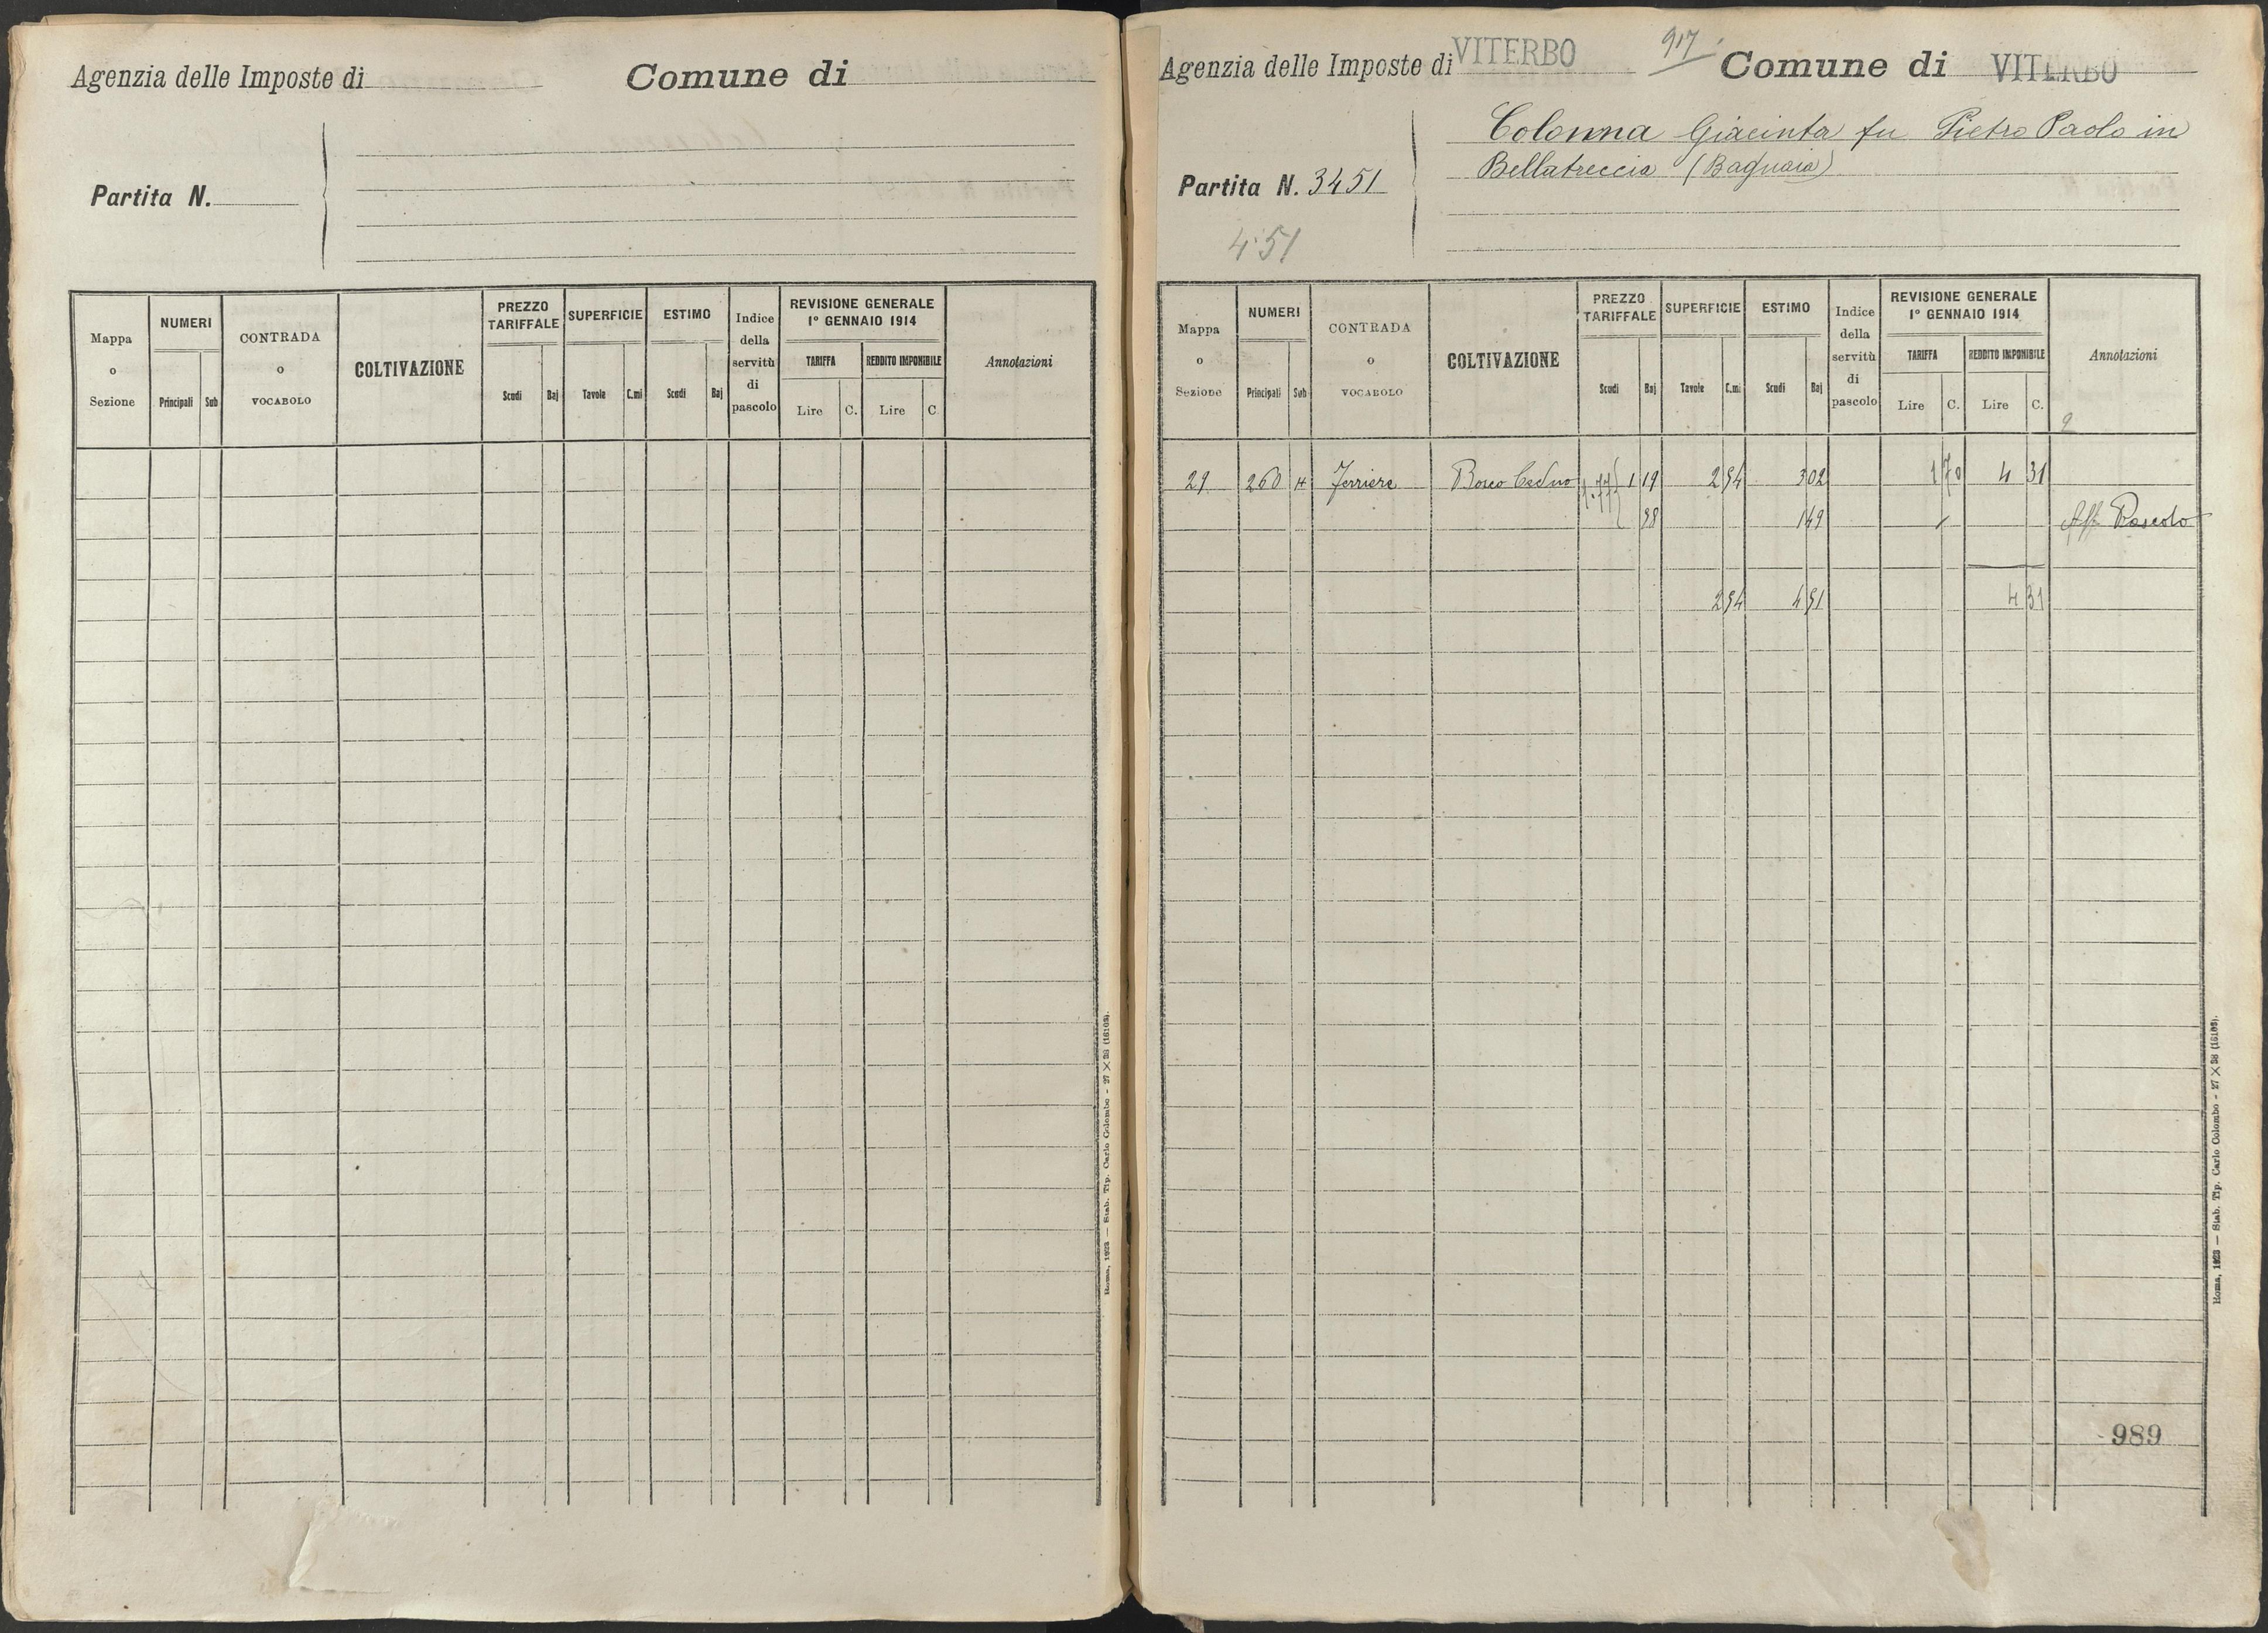 Agenzia delle Imposte di
Comune di
Partita N.
Mappa o Sezione
NUMERI
Principali Sub
CONTRADA o VOCABOLO
COLTIVAZIONE
PREZZO TARIFFALE
Scudi Baj
SUPERFICIE
Tavole C.mi
ESTIMO
Scudi Baj
Indice della servitù di pascolo
REVISIONE GENERALE
1° GENNAIO 1914
TARIFFA
Lire C.
REDDITO IMPONIBILE
Lire C
Annotazioni
Roma, 1923 — Stab. Tip. Carlo Colombo - 27 × 38 (16103).
Agenzia delle Imposte di VITERBO
917
Comune di VITERBO
Partita N. 3451
451
Colonna Giacinta fu Pietro Paolo in
Bellatreccia (Bagnaia)
Mappa o Sezione
NUMERI
Principali Sub
CONTRADA o VOCABOLO
COLTIVAZIONE
PREZZO TARIFFALE
Scudi Baj
SUPERFICIE
Tavole C.mi
ESTIMO
Scudi Baj
Indice della servitù di pascolo
REVISIONE GENERALE
1° GENNAIO 1914
TARIFFA
Lire C.
REDDITO IMPONIBILE
Lire C.
Annotazioni
2
29 260 4 Ferriera Bosco Ceduo 1 19 2 54 3 02 1 70 4 31
58 1 49 Aff. Pascolo
2 54 4 51 4 31
989
Roma, 1923 — Stab. Tip. Carlo Colombo - 27 × 38 (16103).